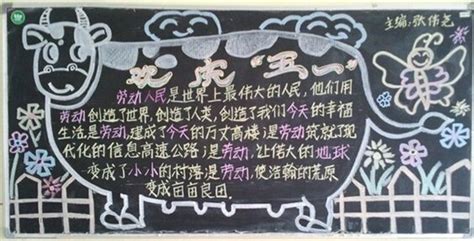 主编:张伟芝
欢庆"五一"
劳动人民是世界上最伟大的人民，他们用
劳动创造了世界，创造了人类，创造了我们今天的幸福
生活是劳动，建成了今天的万丈高楼；是劳动筑就了现
代化的信息高速公路；是劳动，让偉大的地球
变成了小小的村落；是劳动，使浩翰的荒原
变成亩亩良田.